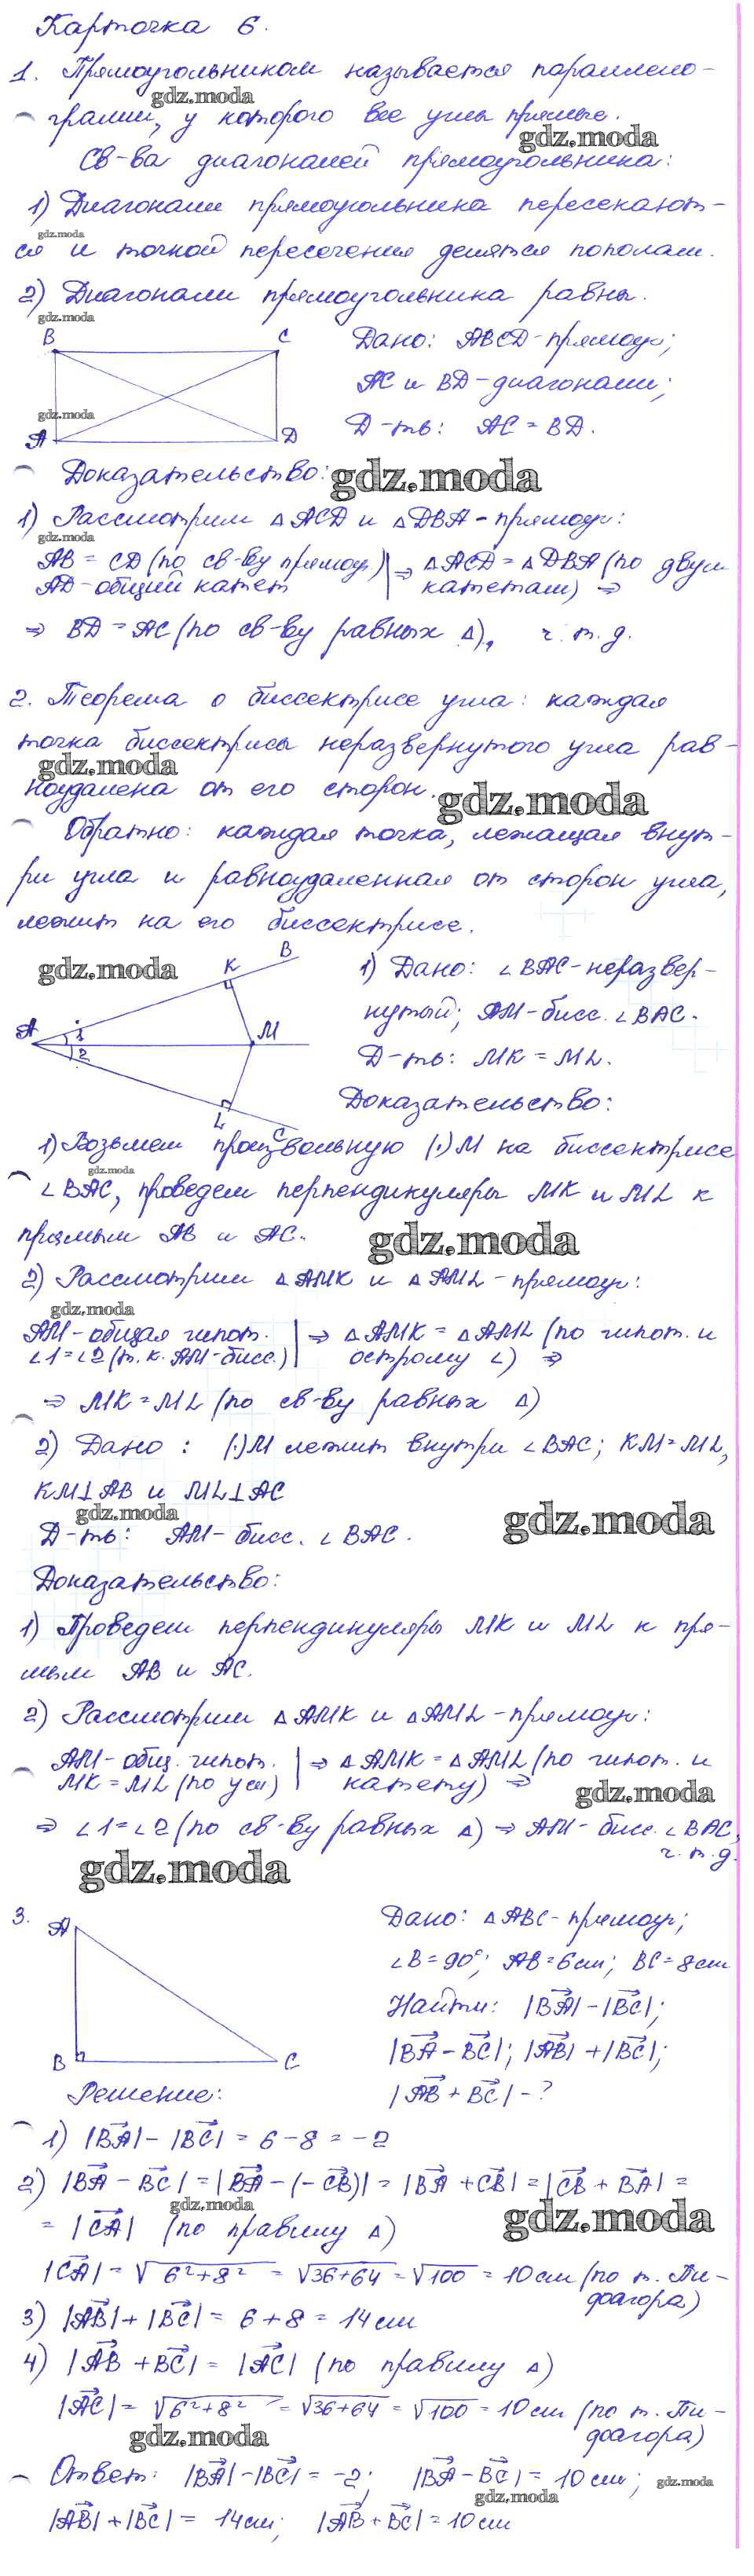 Карточка 6.
1. Прямоугольником называется параллело-
грамм, у которого все углы прямые.
gdz.moda
gdz.moda
Св-ва диагоналей прямоугольника:
1) Диагонали прямоугольника пересекают-
gdz.moda
ся и точкой пересечения делятся пополам.
2) Диагонали прямоугольника равны.
gdz.moda
B C
gdz.moda
A D
Дано: ABCD-прямоуг;
AC и BD-диагонали;
Д-ть: AC = BD.
Доказательство:
gdz.moda
1) Рассмотрим △ACD и △DBA-прямоуг:
gdz.moda
AB = CD (по св-ву прямоуг) | ⇒ △ACD = △DBA (по двум
AD-общий катет | катетам) ⇒
⇒ BD = AC (по св-ву равных △), ч.т.д.
2. Теорема о биссектрисе угла: каждая
точка биссектрисы неразвернутого угла рав-
gdz.moda
ноудалена от его сторон.
gdz.moda
Обратно: каждая точка, лежащая внут-
ри угла и равноудаленная от сторон угла,
лежит на его биссектрисе.
gdz.moda
K B
A 1 2 M
L C
1) Дано: ∠BAC-неразвер-
нутый; AM-бисс. ∠BAC.
Д-ть: MK = ML.
Доказательство:
1) Возьмем произвольную (·)M на биссектрисе
gdz.moda
∠BAC, проведем перпендикуляры MK и ML к
прямым AB и AC.
gdz.moda
2) Рассмотрим △AMK и △AML-прямоуг:
gdz.moda
AM-общая гипот. | ⇒ △AMK = △AML (по гипот. и
∠1=∠2 (т.к. AM-бисс.) | острому ∠) ⇒
⇒ MK = ML (по св-ву равных △)
2) Дано: (·)M лежит внутри ∠BAC; KM=ML,
KM⊥AB и ML⊥AC
gdz.moda
gdz.moda
Д-ть: AM-бисс. ∠BAC.
Доказательство:
1) Проведем перпендикуляры MK и ML к пря-
мым AB и AC.
2) Рассмотрим △AMK и △AML-прямоуг:
AM-общ. гипот. | ⇒ △AMK = △AML (по гипот. и
MK = ML (по усл) | катету) ⇒
gdz.moda
⇒ ∠1=∠2 (по св-ву равных △) ⇒ AM-бисс. ∠BAC,
ч.т.д.
gdz.moda
3.
A
B C
Дано: △ABC-прямоуг;
∠B=90°; AB=6см; BC=8см
Найти: |BA|-|BC|;
|BA-BC|; |AB|+|BC|;
|AB+BC|-?
Решение:
1) |BA|-|BC| = 6-8 = -2
2) |BA-BC| = |BA-(-CB)| = |BA+CB| = |CB+BA| =
gdz.moda
gdz.moda
= |CA| (по правилу △)
|CA| = √6²+8² = √36+64 = √100 = 10см (по т. Пи-
фагора)
3) |AB|+|BC| = 6+8 = 14см
4) |AB+BC| = |AC| (по правилу △)
|AC| = √6²+8² = √36+64 = √100 = 10см (по т. Пи-
фагора)
gdz.moda
Ответ: |BA|-|BC| = -2; |BA-BC| = 10см;
gdz.moda
gdz.moda
|AB|+|BC| = 14см; |AB+BC| = 10см